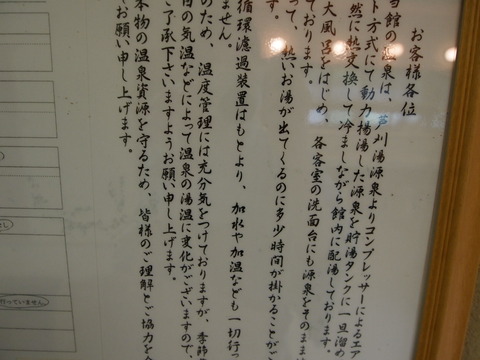 お客様各位
当館の温泉は、芦刈湯源泉よりコンプレッサーによるエア
ト方式にて動力揚湯した源泉を貯湯タンクに一旦溜め
然に熱交換して冷ましながら館内に配湯しております。
大風呂をはじめ、各客室の洗面台にも源泉をそのまま
ております。
って、熱いお湯が出てくるのに多少時間が掛かることがご
ません。
循環濾過装置はもとより、加水や加温なども一切行っ
のため、温度管理には充分気をつけておりますが、季節
日の気温などによって温泉の湯温に変化がございますので、
ご了承下さいますようお願い申し上げます。
本物の温泉資源を守るため、皆様のご理解とご協力を
お願い申し上げます。
行っていません